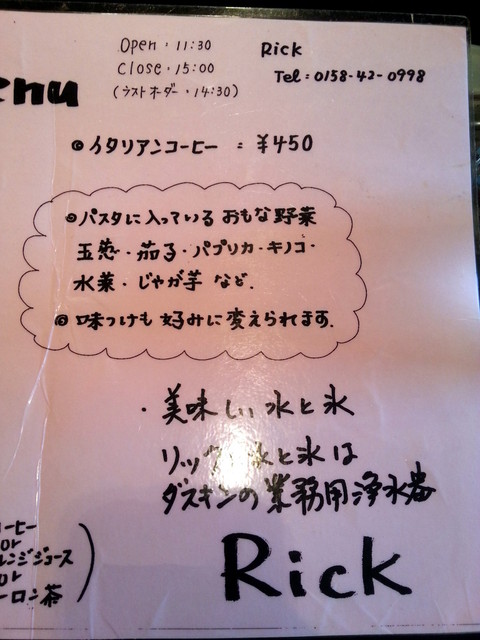 Open・11:30
Close・15:00
(ラストオーダー・14:30)
Rick
Tel:0158-42-0998
enu
◎イタリアンコーヒー : ¥450
◎パスタに入っている おもな野菜
玉葱・茄子・パプリカ・キノコ・
水菜・じゃが芋 など.
◎味つけも 好みに変えられます.
・美味しい 水と氷
リック 水と氷は
ダスキンの業務用浄水器
Rick
コーヒー
or
レンジジュース
or
ーロン茶